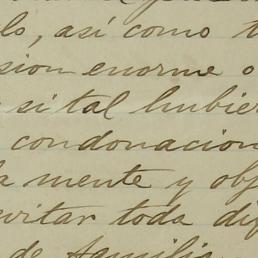 lo, así como t
sion enorme o
si tal hubier
condonacion
a mente y obj
vitar toda dif
de familia